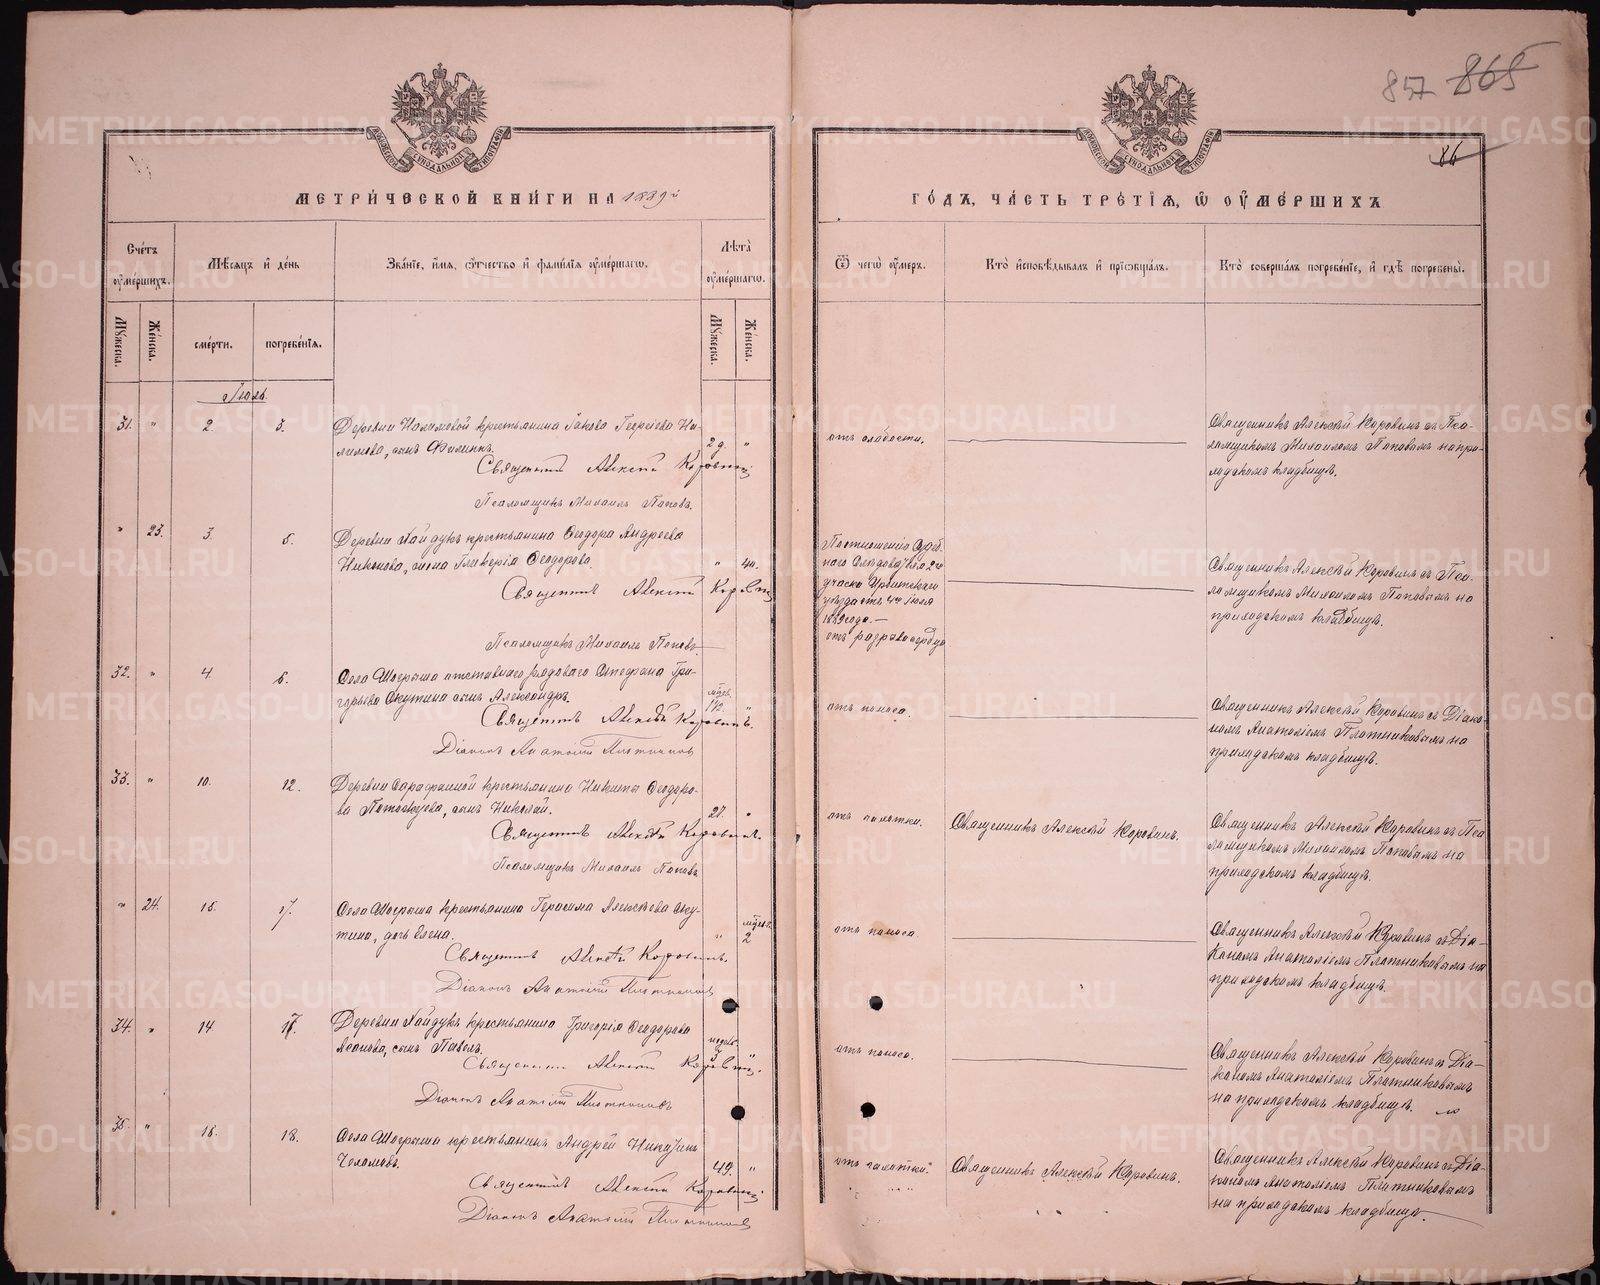 857 865
86
МЕТРИ́ЧЕСКОЙ КНИ́ГИ НА 1889й
ГО́ДЪ, ЧА́СТЬ ТРЕ́ТІѦ, Ѿ ОУ҆МЕ́РШИХЪ
Сче́тъ оу҆ме́ршихъ.
Мѣ́сяцъ и҆ де́нь
Зва́нїе, и҆́мѧ, ѻ҆́тчество и҆ фами́лїѧ оу҆ме́ршагѡ.
Лѣ́та оу҆ме́ршагѡ.
Ѿ чегѡ̀ оу҆́меръ.
Кто̀ и҆сповѣ́дывалъ и҆ прїѡбща́лъ.
Кто̀ соверша́лъ погребе́нїе, и҆ гдѣ̀ погребены̀.
Мꙋ́жеска.
Же́нска.
сме́рти.
погребе́нїѧ.
Мꙋ́жеска.
Же́нска.
Іюль.
31. " 2. 5.
Деревни Налимовой крестьянина Іакова Георгіева На-
лимова, сынъ Филиппъ. 2 д. "
Священникъ Алексій Коровинъ
Псаломщикъ Михаилъ Поповъ.
отъ слабости.
Священникъ Алексѣй Коровинъ съ Пса-
ломщикомъ Михаиломъ Поповымъ на при-
ходскомъ кладбищѣ.
" 23. 3. 5.
Деревни Хайдукъ крестьянина Ѳеодора Андреева
Никонова, жена Гликерія Ѳеодорова. " 40.
Священникъ Алексій Коровинъ
Псаломщикъ Михаилъ Поповъ.
По отношенію Судеб-
наго Слѣдователя 2го
участка Ирбитскаго
уѣзда отъ 4го Іюля
1889 года.—
отъ разрыва сердца
Священникъ Алексѣй Коровинъ съ Пса-
ломщикомъ Михаиломъ Поповымъ на
приходскомъ кладбищѣ.
32. " 4. 6.
Села Шогрыша отставнаго рядоваго Стефана Гри-
горьева Окутина сынъ Александръ.
Священникъ Алексѣй Коровинъ.
Діаконъ Анатолій Плотниковъ
отъ поноса.
Священникъ Алексѣй Коровинъ съ Діако-
номъ Анатоліемъ Плотниковымъ на
приходскомъ кладбищѣ.
33. " 10. 12.
Деревни Сарафанной крестьянина Никиты Ѳеодоро-
ва сынъ Николай. 27. "
Священникъ Алексѣй Коровинъ.
Псаломщикъ Михаилъ Поповъ
отъ чахотки.
Священникъ Алексѣй Коровинъ.
Священникъ Алексѣй Коровинъ съ Пса-
ломщикомъ Михаиломъ Поповымъ на
приходскомъ кладбищѣ.
" 24. 15. 17.
Села Шогрыша крестьянина Герасима Алексѣева Оку-
тина, дочь Елена. " 2
Священникъ Алексѣй Коровинъ.
Діаконъ Анатолій Плотниковъ
отъ поноса
Священникъ Алексѣй Коровинъ съ Діа-
кономъ Анатоліемъ Плотниковымъ на
приходскомъ кладбищѣ.
34. " 14. 17.
Деревни Хайдукъ крестьянина Григорія Ѳеодорова
сынъ Павелъ. недѣль "
Священникъ Алексѣй Коровинъ.
Діаконъ Анатолій Плотниковъ
отъ поноса.
Священникъ Алексѣй Коровинъ съ Діа-
кономъ Анатоліемъ Плотниковымъ
на приходскомъ кладбищѣ.
35. " 16. 18.
Села Шогрыша крестьянинъ Андрей Никитинъ
49. "
Священникъ Алексѣй Коровинъ
Діаконъ Анатолій Плотниковъ
отъ чахотки.
Священникъ Алексѣй Коровинъ.
Священникъ Алексѣй Коровинъ съ Діа-
кономъ Анатоліемъ Плотниковымъ
на приходскомъ кладбищѣ.
METRIKI.GASO-URAL.RU